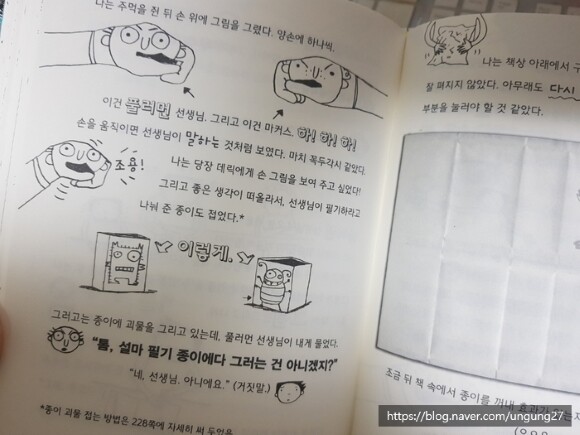 나는 주먹을 쥔 뒤 손 위에 그림을 그렸다. 양손에 하나씩.
이건 풀러먼 선생님. 그리고 이건 마커스 하! 하! 하!
손을 움직이면 선생님이 말하는 것처럼 보였다. 마치 꼭두각시 같았다.
조용!
나는 당장 데릭에게 손 그림을 보여 주고 싶었다!
그리고 좋은 생각이 떠올라서, 선생님이 필기하라고
나눠 준 종이도 접었다.*
이렇게.
그러고는 종이에 괴물을 그리고 있는데, 풀러먼 선생님이 내게 물었다.
"톰, 설마 필기 종이에다 그러는 건 아니겠지?"
"네, 선생님. 아니에요." (거짓말.)
*종이 괴물 접는 방법은 228쪽에 자세히 써 두었음
나는 책상 아래에서
잘 펴지지 않았다. 아무래도 다시
부분을 눌러야 할 것 같았다.
조금 뒤 책 속에서 종이를 꺼내
https://blog.naver.com/ungung27